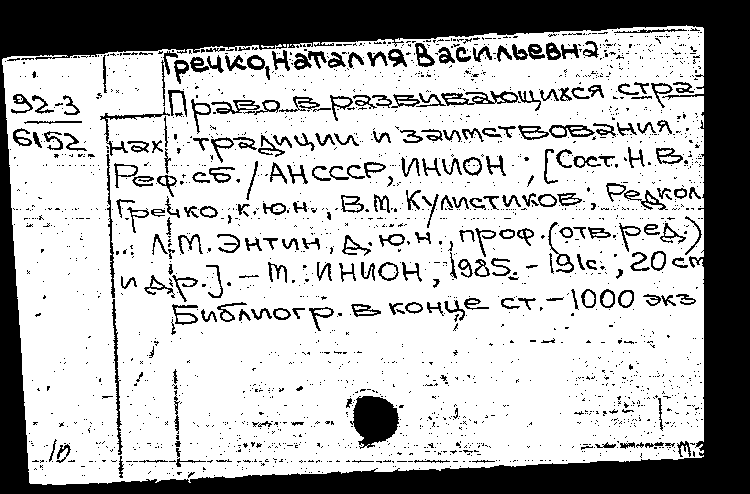 Гречко, Наталия Васильевна.
92-3
6152
Право в развивающихся стра-
нах: традиции и заимствования:
Реф. сб. / АН СССР, ИНИОН; [Сост. Н.В.
Гречко, к.ю.н., В.М. Кулистиков; Редкол.
.. Л.М. Энтин, д.ю.н., проф. (отв. ред.)
и др.]. - М.: ИНИОН, 1985. - 191с.; 20 см
Библиогр. в конце ст. - 1000 экз
10